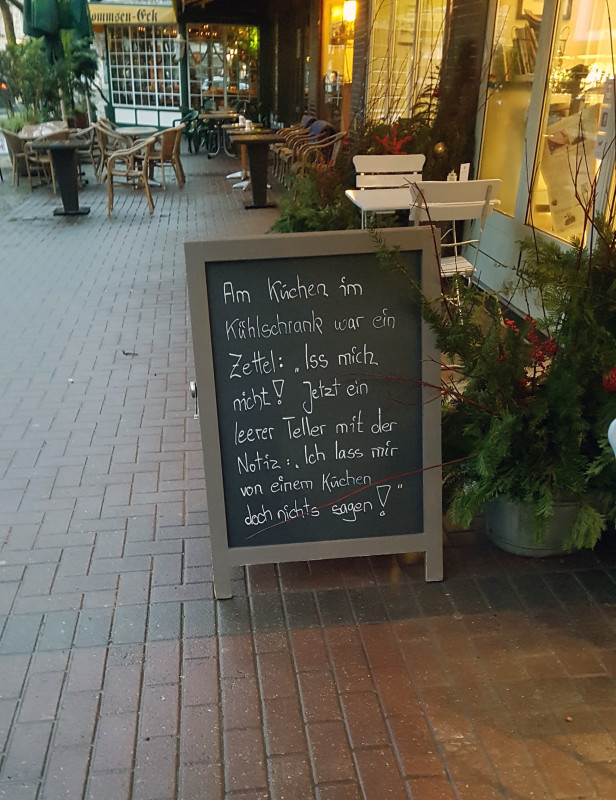 ommsen-Eck
Am Kuchen im
Kühlschrank war ein
Zettel: „Iss mich
nicht! Jetzt ein
leerer Teller mit der
Notiz: „Ich lass mir
von einem Kuchen
doch nichts sagen!“